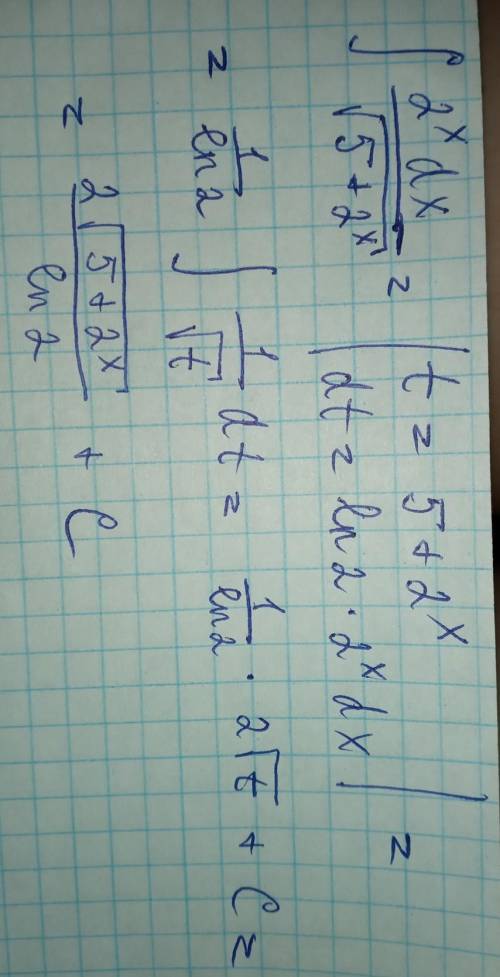 ∫ 2^x dx / √(5 + 2^x) = | t = 5 + 2^x
dt = ln 2 · 2^x dx | =
= 1/ln 2 ∫ 1/√t dt = 1/ln 2 · 2√t + C =
= 2√(5 + 2^x) / ln 2 + C